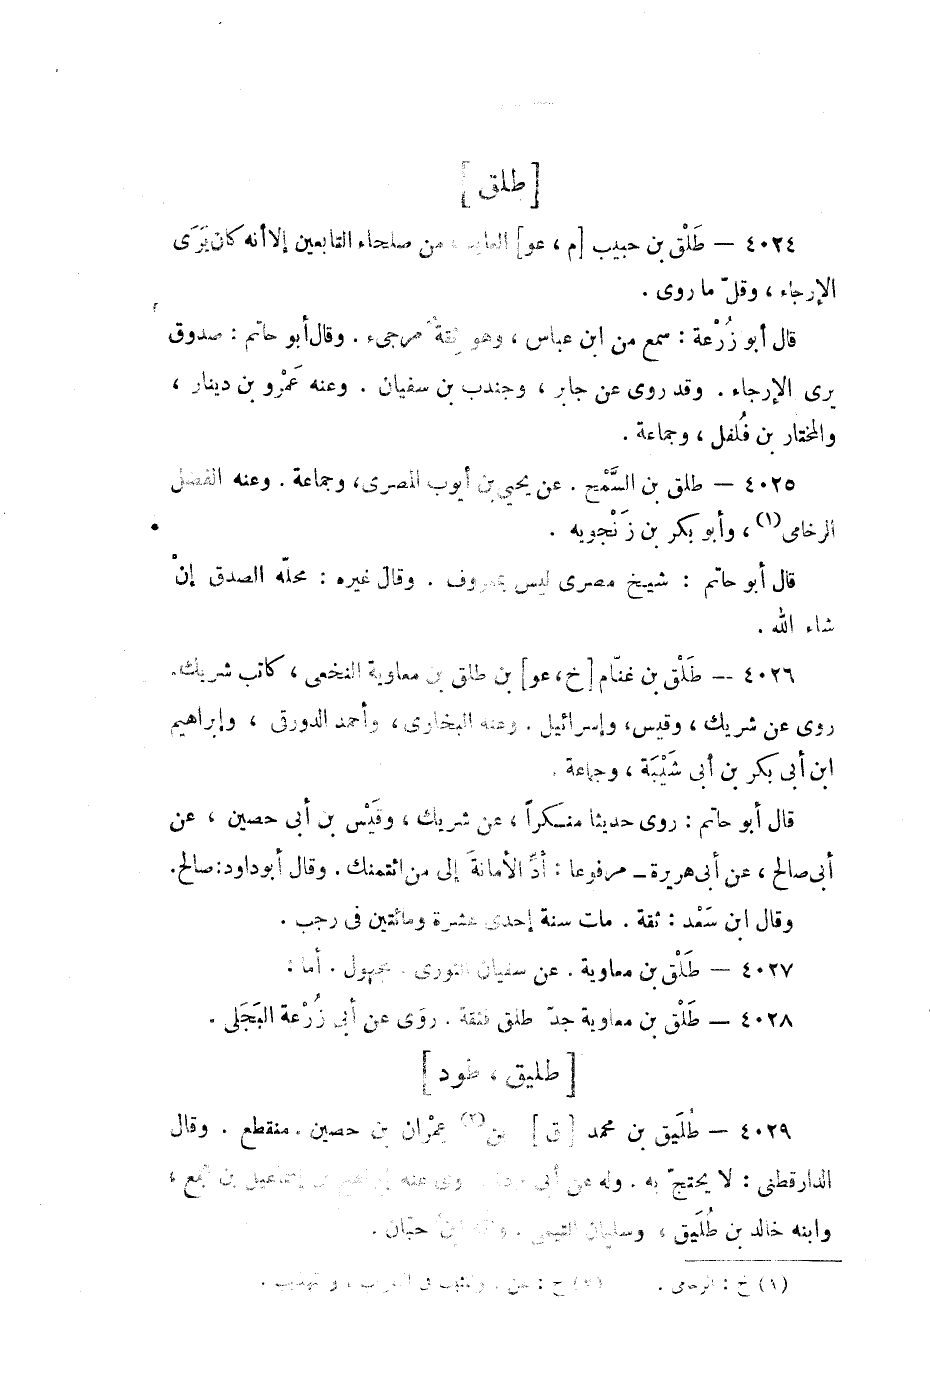 [ طلق ]
٤٠٢٤ — طَلْق بن حبيب [م ، عو] العابد ، من صلحاء التابعين إلا أنه كان يَرَى
الإرجاء ، وقلّ ما روى .
قال أبو زُرْعة : سمع من ابن عباس ، وهو ثقةٌ مرجىء . وقال أبو حاتم : صدوق
يرى الإرجاء . وقد روى عن جابر ، وجندب بن سفيان . وعنه عَمْرو بن دينار ،
والمختار بن فُلفل ، وجماعة .
٤٠٢٥ — طلق بن السَّمْح . عن يحيى بن أيوب المصرى، وجماعة . وعنه الفضل
الرخامى(١) ، وأبو بكر بن زَنْجويه .
قال أبو حاتم : شيخ مصرى ليس بمعروف . وقال غيره : محلّه الصدق إنْ
شاء الله .
٤٠٢٦ — طَلْق بن غنّام [خ، عو] بن طلق بن معاوية النخعى ، كاتب شريك.
روى عن شريك ، وقيس، وإسرائيل . وعنه البخارى، وأحمد الدورقى ، وإبراهيم
ابن أبى بكر بن أبى شَيْبَة ، وجماعة .
قال أبو حاتم : روى حديثا منكراً ، عن شريك ، وقَيْس بن أبى حصين ، عن
أبى صالح ، عن أبى هريرة – مرفوعا : أدِّ الأمانةَ إلى من ائتمنك . وقال أبوداود:صالح.
وقال ابن سَعْد : ثقة . مات سنة إحدى عشرة ومائتين فى رجب .
٤٠٢٧ — طَلْق بن معاوية . عن سفيان الثورى . مجهول . أما :
٤٠٢٨ — طَلْق بن معاوية جدّ طلق فثقة . روَى عن أبى زُرْعة البَجَلى .
[ طليق ، طود ]
٤٠٢٩ — طُلَيق بن محمد [ ق ] بن(٢) عِمْران بن حصين . منقطع . وقال
الدارقطنى : لا يحتجّ به . وله عن أبى بردة . روى عنه إبراهيم بن إسماعيل بن مجمع ،
وابنه خالد بن طُلَيق ، وسليمان التيمى . وثقه ابن حبّان .
(١) خ : الرحامى . (٢) ح : عن . والمثبت فى ، والتهذيب .